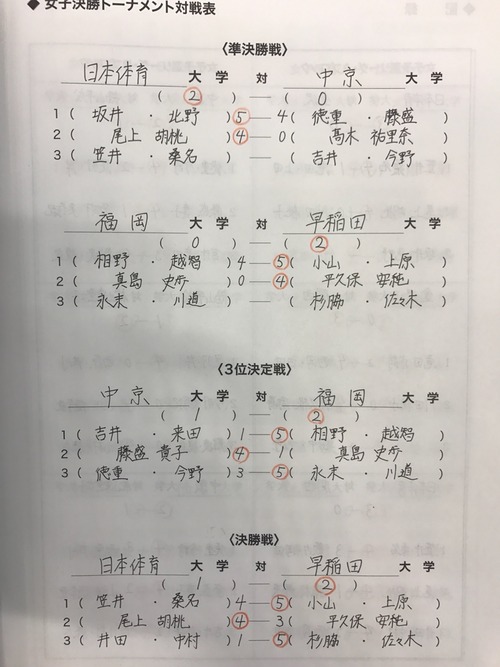 ◆ 女子決勝トーナメント対戦表
〈準決勝戦〉
日本体育 大学 対 中京 大学
( ② ) — ( 0 )
1 ( 坂井 ・ 北野 ) ⑤ — 4 ( 徳重 ・ 藤盛 )
2 ( 尾上 胡桃 ) ④ — 0 ( 高木 祐里奈 )
3 ( 笠井 ・ 桑名 ) — ( 吉井 ・ 今野 )
福岡 大学 対 早稲田 大学
( 0 ) — ( ② )
1 ( 相野 ・ 越智 ) 4 — ⑤ ( 小山 ・ 上原 )
2 ( 真島 史歩 ) 0 — ④ ( 平久保 安純 )
3 ( 永末 ・ 川道 ) — ( 杉脇 ・ 佐々木 )
〈3位決定戦〉
中京 大学 対 福岡 大学
( 1 ) — ( ② )
1 ( 吉井 ・ 来田 ) 1 — ⑤ ( 相野 ・ 越智 )
2 ( 藤盛 貴子 ) ④ — 1 ( 真島 史歩 )
3 ( 徳重 ・ 今野 ) 3 — ⑤ ( 永末 ・ 川道 )
〈決勝戦〉
日本体育 大学 対 早稲田 大学
( 1 ) — ( ② )
1 ( 笠井 ・ 桑名 ) 4 — ⑤ ( 小山 ・ 上原 )
2 ( 尾上 胡桃 ) ④ — 3 ( 平久保 安純 )
3 ( 井田 ・ 中村 ) 1 — ⑤ ( 杉脇 ・ 佐々木 )